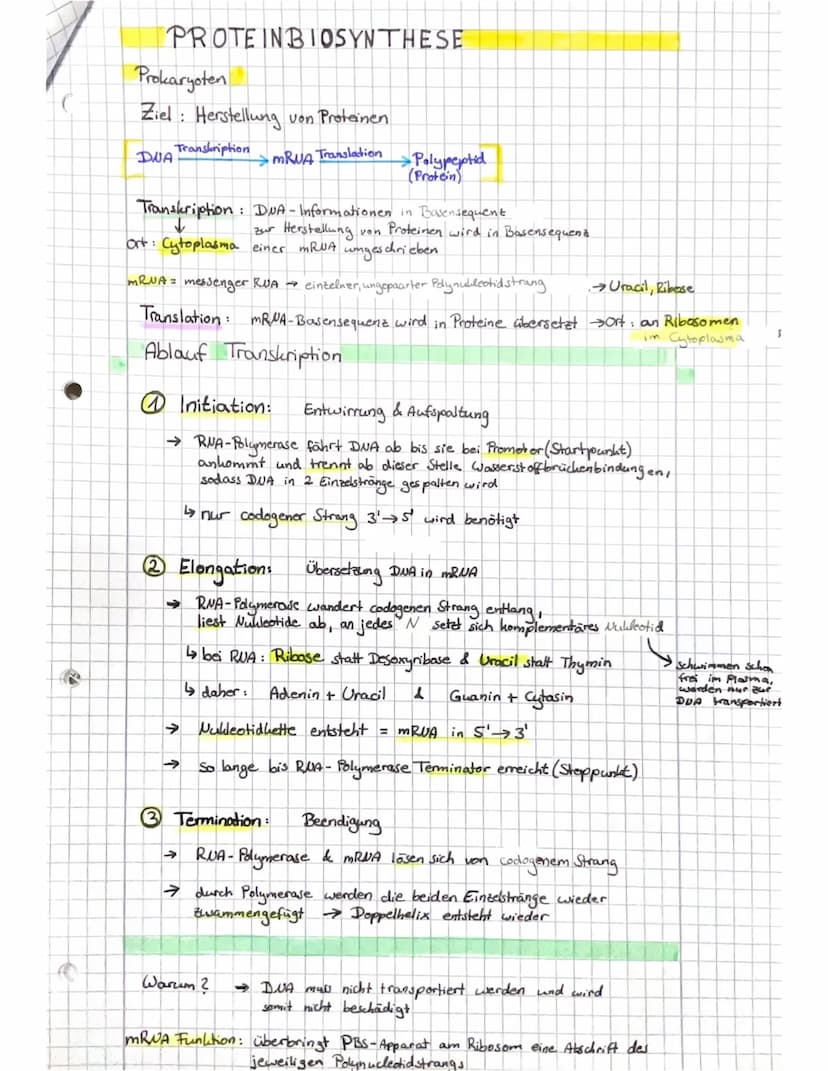 PROTEINBIOSYNTHESE
Prokaryoten
Ziel : Herstellung von Proteinen
DNA Transkription → mRNA Translation → Polypeptid
(Protein)
Transkription : DNA - Informationen in Basensequent
zur Herstellung von Proteinen wird in Basensequenz
Ort : Cytoplasma einer mRNA umgeschrieben
mRNA = messenger RNA → einzelner, ungepaarter Polynukleotidstrang → Uracil, Ribose
Translation : mRNA-Basensequenz wird in Proteine übersetzt → Ort : an Ribosomen
im Cytoplasma
Ablauf Transkription
① Initiation: Entwirrung & Aufspaltung
→ RNA-Polymerase fährt DNA ab bis sie bei Promotor (Startpunkt)
ankommt und trennt ab dieser Stelle Wasserstoffbrückenbindungen,
sodass DNA in 2 Einzelstränge gespalten wird
↳ nur codogener Strang 3' → 5' wird benötigt
② Elongation: Übersetzung DNA in mRNA
→ RNA-Polymerase wandert codogenen Strang entlang,
liest Nukleotide ab, an jedes N setzt sich komplementäres Nukleotid
↳ bei RNA : Ribose statt Desoxyribase & Uracil statt Thymin
→ schwimmen schon
frei im Plasma,
werden nur zur
DNA transportiert
↳ daher : Adenin + Uracil & Guanin + Cytosin
→ Nukleotidkette entsteht = mRNA in 5' → 3'
→ so lange bis RNA - Polymerase Terminator erreicht (Stoppunkt)
③ Termination : Beendigung
→ RNA - Polymerase & mRNA lösen sich von codogenem Strang
→ durch Polymerase werden die beiden Einzelstränge wieder
zusammengefügt → Doppelhelix entsteht wieder
Warum ? → DNA muss nicht transportiert werden und wird
somit nicht beschädigt
mRNA Funktion : überbringt PBS-Apparat am Ribosom eine Abschrift des
jeweiligen Polynucleotidstrangs